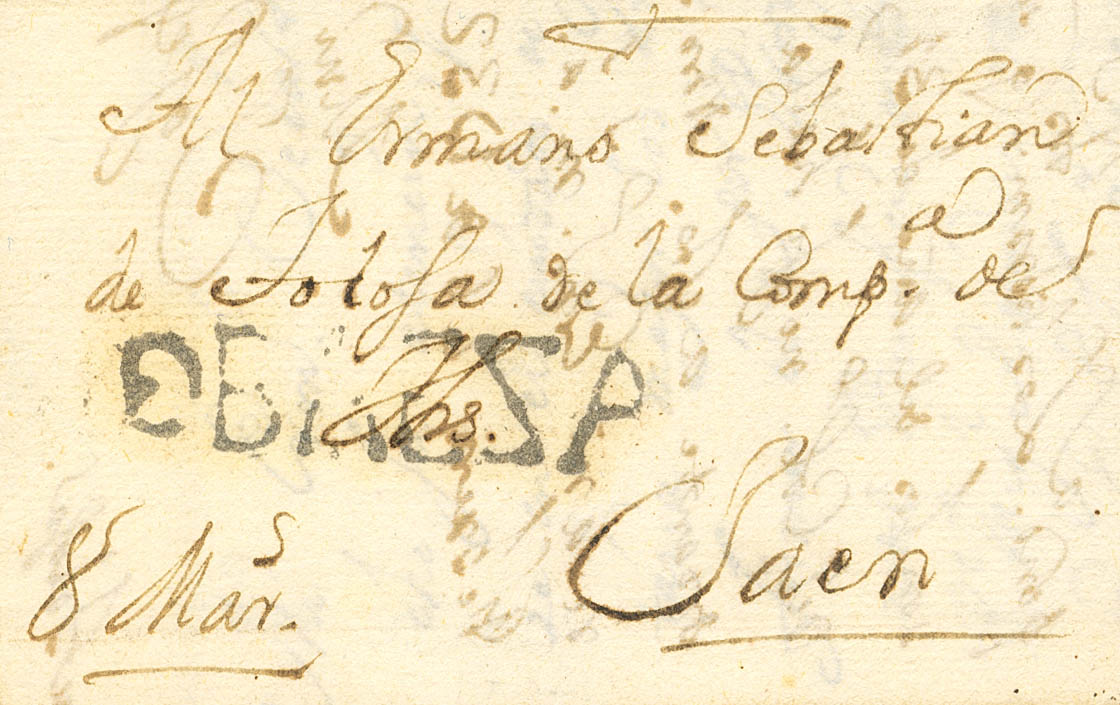 Al Ermano Sebastian
de Tolosa de la Comp.a de
Jhs.
Jaen
8 Mar.s